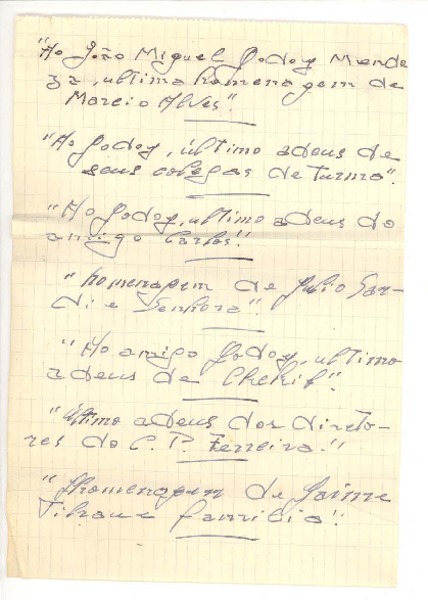 "Ao João Miguel Godoy Mende
za, ultima homenagem de
Marcio Alves".
"Ao Godoy, último adeus de
seus colegas de turma".
"Ao Godoy, ultimo adeus do
amigo Carlos".
"homenagem de Julio Sar-
di e Senhora".
"Ao amigo Godoy, ultimo
adeus de Chekib".
"último adeus dos direto-
res do C. P. Ferreira."
"Homenagem de Jaime
e familia".